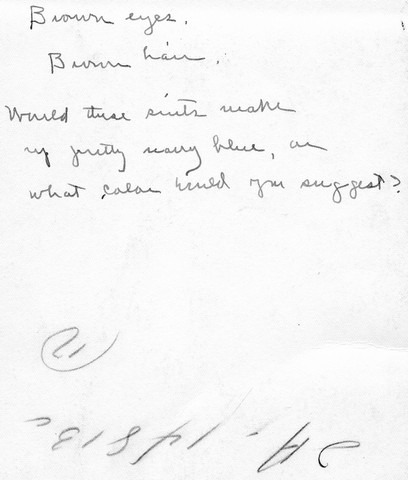 Brown eyes.
Brown hair.
Would these suits make
up pretty navy blue, or
what color would you suggest?
12
24-14813c